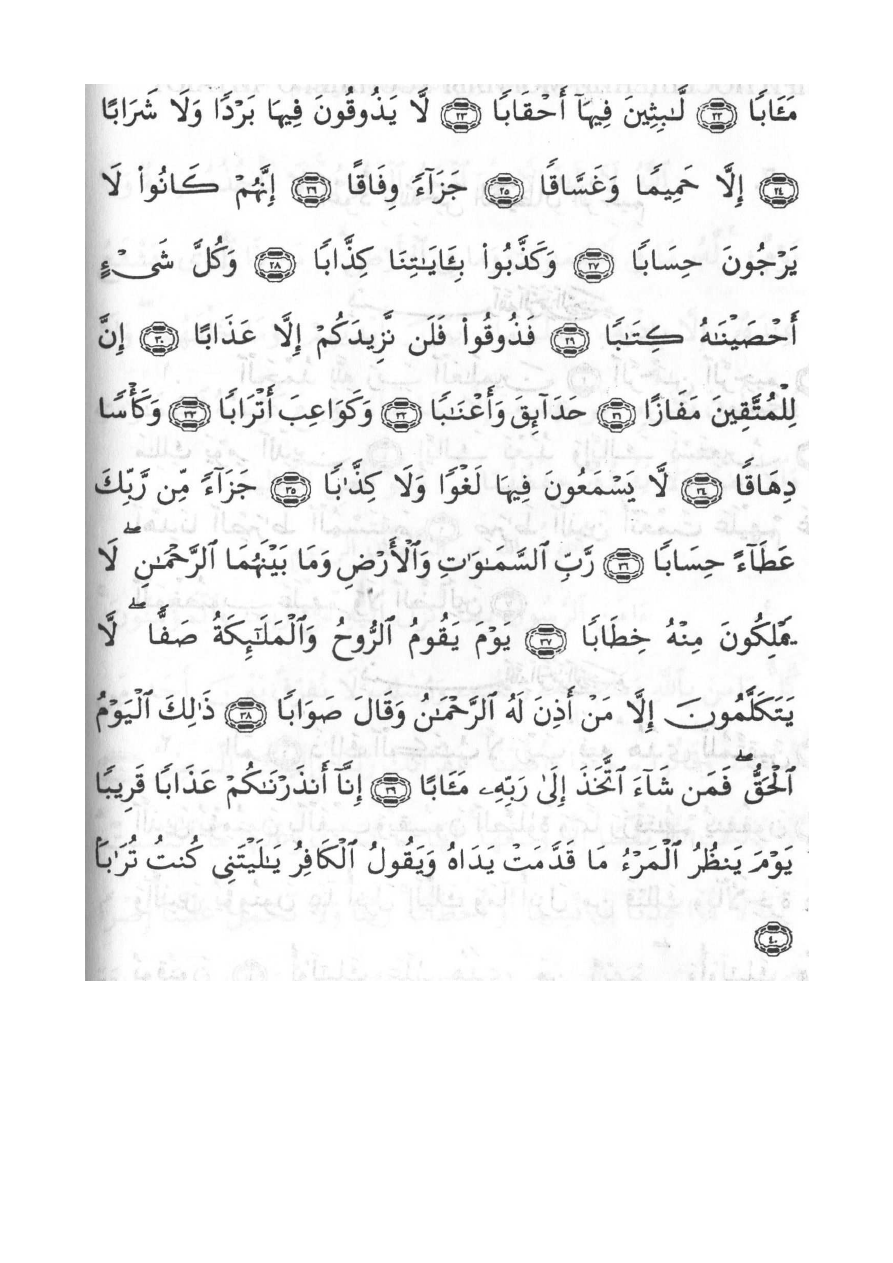 مَـَٔابًا ٢٢ لَّٰبِثِينَ فِيهَآ أَحْقَابًا ٢٣ لَّا يَذُوقُونَ فِيهَا بَرْدًا وَلَا شَرَابًا
٢٤ إِلَّا حَمِيمًا وَغَسَّاقًا ٢٥ جَزَآءً وِفَاقًا ٢٦ إِنَّهُمْ كَانُوا۟ لَا
يَرْجُونَ حِسَابًا ٢٧ وَكَذَّبُوا۟ بِـَٔايَٰتِنَا كِذَّابًا ٢٨ وَكُلَّ شَىْءٍ
أَحْصَيْنَٰهُ كِتَٰبًا ٢٩ فَذُوقُوا۟ فَلَن نَّزِيدَكُمْ إِلَّا عَذَابًا ٣٠ إِنَّ
لِلْمُتَّقِينَ مَفَازًا ٣١ حَدَآئِقَ وَأَعْنَٰبًا ٣٢ وَكَوَاعِبَ أَتْرَابًا ٣٣ وَكَأْسًا
دِهَاقًا ٣٤ لَّا يَسْمَعُونَ فِيهَا لَغْوًا وَلَا كِذَّٰبًا ٣٥ جَزَآءً مِّن رَّبِّكَ
عَطَآءً حِسَابًا ٣٦ رَّبِّ ٱلسَّمَٰوَٰتِ وَٱلْأَرْضِ وَمَا بَيْنَهُمَا ٱلرَّحْمَٰنِ ۖ لَا
يَمْلِكُونَ مِنْهُ خِطَابًا ٣٧ يَوْمَ يَقُومُ ٱلرُّوحُ وَٱلْمَلَٰٓئِكَةُ صَفًّا ۖ لَّا
يَتَكَلَّمُونَ إِلَّا مَنْ أَذِنَ لَهُ ٱلرَّحْمَٰنُ وَقَالَ صَوَابًا ٣٨ ذَٰلِكَ ٱلْيَوْمُ
ٱلْحَقُّ ۖ فَمَن شَآءَ ٱتَّخَذَ إِلَىٰ رَبِّهِۦ مَـَٔابًا ٣٩ إِنَّآ أَنذَرْنَٰكُمْ عَذَابًا قَرِيبًا
يَوْمَ يَنظُرُ ٱلْمَرْءُ مَا قَدَّمَتْ يَدَاهُ وَيَقُولُ ٱلْكَافِرُ يَٰلَيْتَنِى كُنتُ تُرَٰبًا
٤٠